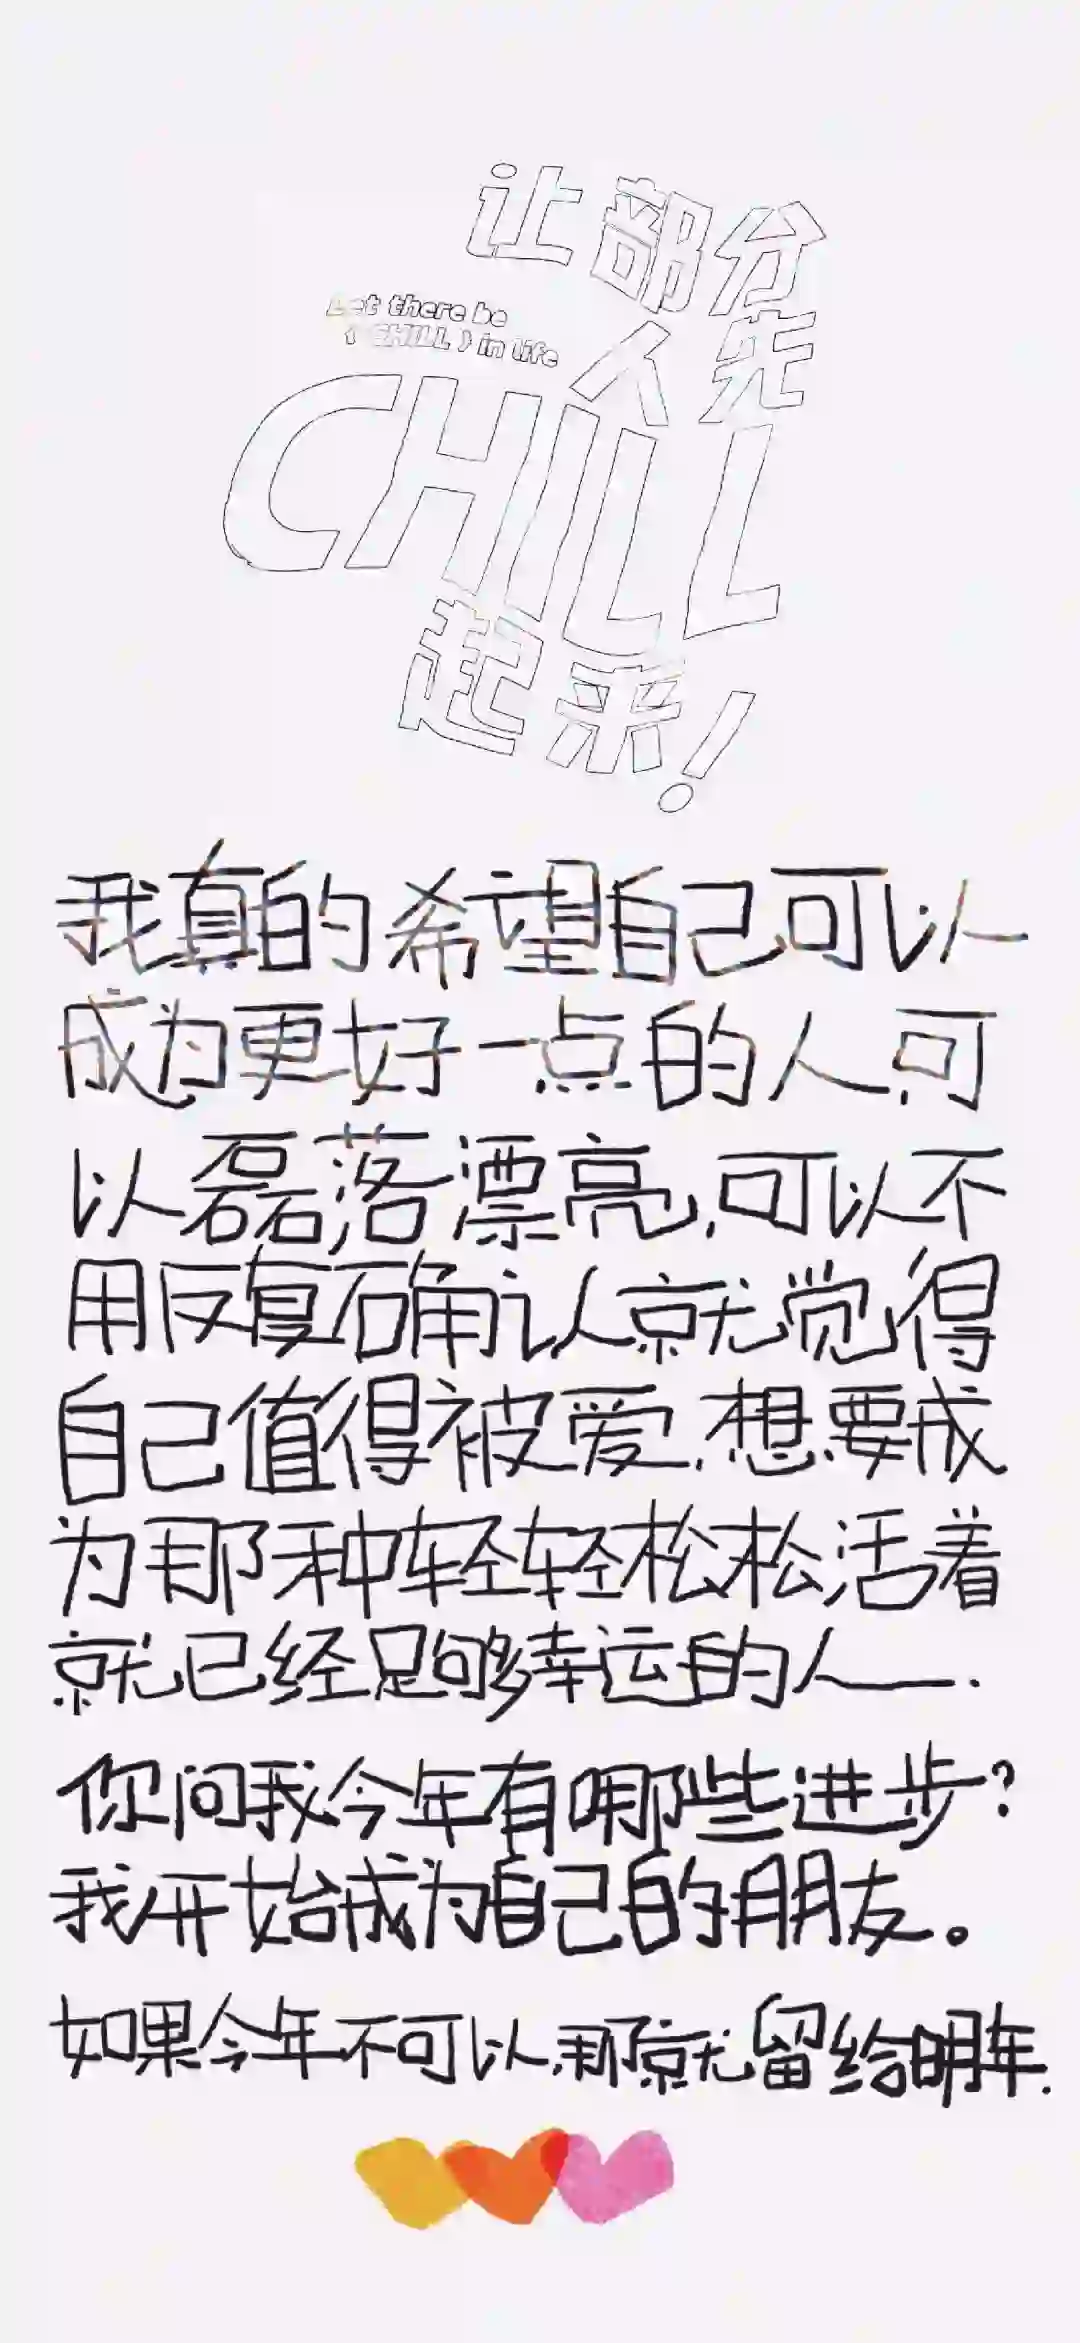 让部分
Let there be
( CHILL ) in life
人先
CHILL
起来!
我真的希望自己可以
成为更好一点的人,可
以磊落漂亮,可以不
用反复确认就觉得
自己值得被爱.想要成
为那种轻轻松松活着
就已经足够幸运的人—.
你问我今年有哪些进步?
我开始成为自己的朋友。
如果今年不可以,那就留给明年.